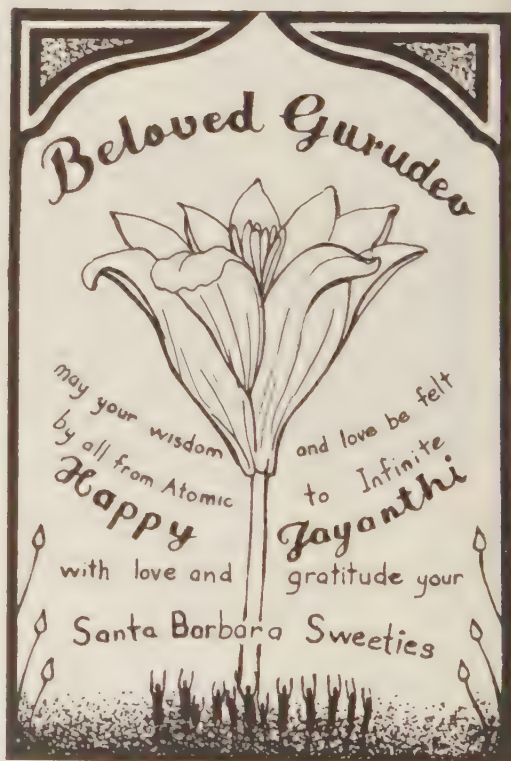 Beloved Gurudev
may your wisdom and love be felt
by all from Atomic to Infinite
Happy Jayanthi
with love and gratitude your
Santa Barbara Sweeties